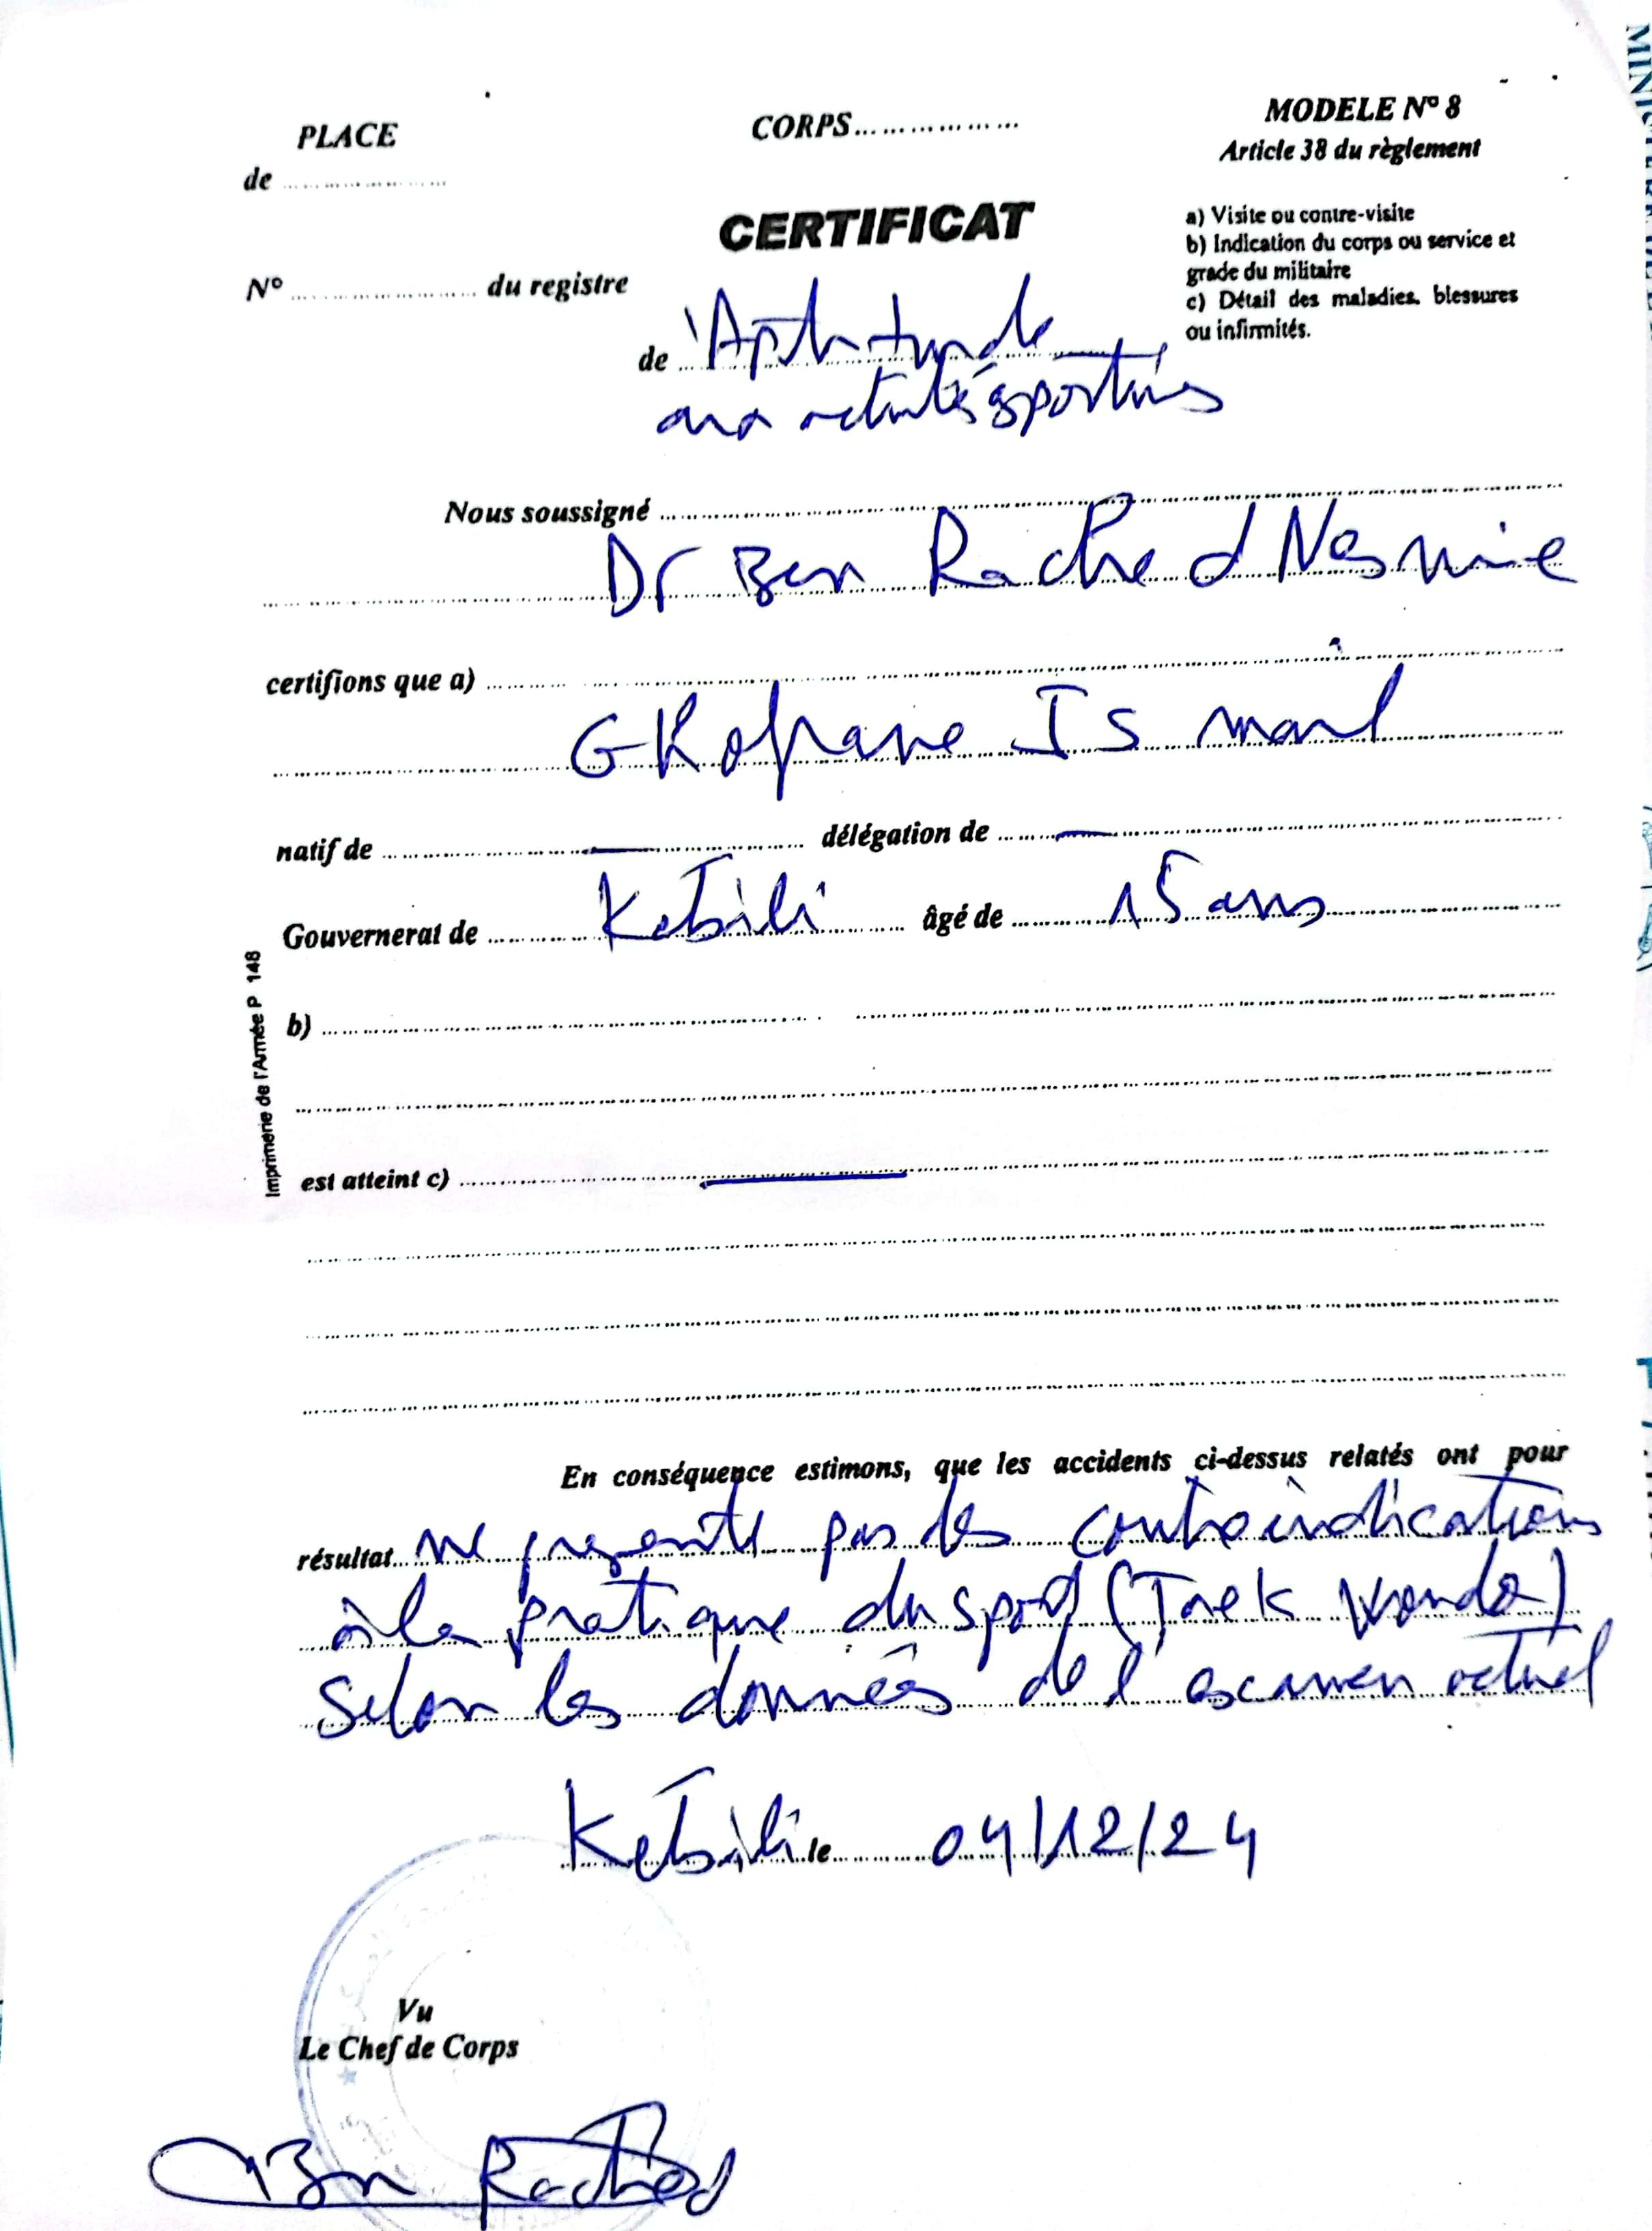 PLACE
de ........................
CORPS..................
MODELE N° 8
Article 38 du règlement
CERTIFICAT
a) Visite ou contre-visite
b) Indication du corps ou service et
grade du militaire
c) Détail des maladies, blessures
ou infirmités.
N° ........................ du registre
de 'Aptitude
aux activités sportives
Nous soussigné
Dr Ben Rached Nesmine
certifions que a)
Ismail
natif de — délégation de —
Gouvernerat de Kebili âgé de 15 ans
b)
Imprimerie de l'Armée P 148
est atteint c) —
En conséquence estimons, que les accidents ci-dessus relatés ont pour
résultat ne presente pas des contreindications
à la pratique du sport (Taek Wondo)
selon les données de l'examen actuel
Kébili le 04/12/24
Vu
Le Chef de Corps
Ben Rached